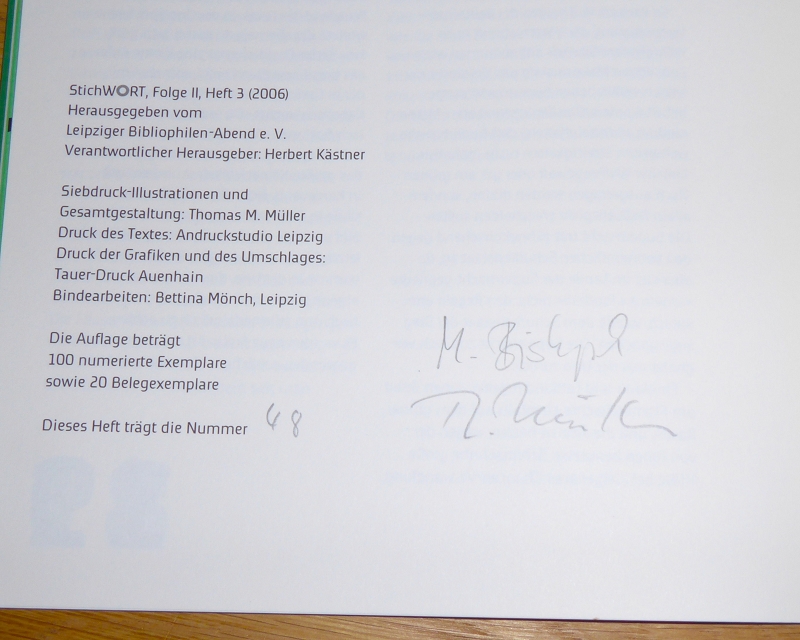 StichWORT, Folge II, Heft 3 (2006)
Herausgegeben vom
Leipziger Bibliophilen-Abend e. V.
Verantwortlicher Herausgeber: Herbert Kästner
Siebdruck-Illustrationen und
Gesamtgestaltung: Thomas M. Müller
Druck des Textes: Andruckstudio Leipzig
Druck der Grafiken und des Umschlages:
Tauer-Druck Auenhain
Bindearbeiten: Bettina Mönch, Leipzig
Die Auflage beträgt
100 numerierte Exemplare
sowie 20 Belegexemplare
Dieses Heft trägt die Nummer 48
M.